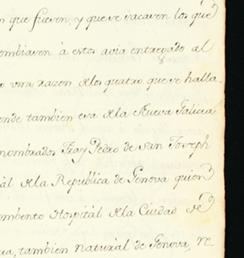 n que fueron, y que vacaven los que
ombiaven à estos avia entregado al
e una razon de los quatro que halla
onde tambien era de la Nueva Galicia
nombrados Fray Pedro de San Joseph
al de la Republica de Genova quien
mbento Hospital de la Ciudad de
ua, tambien natural de Genova, re